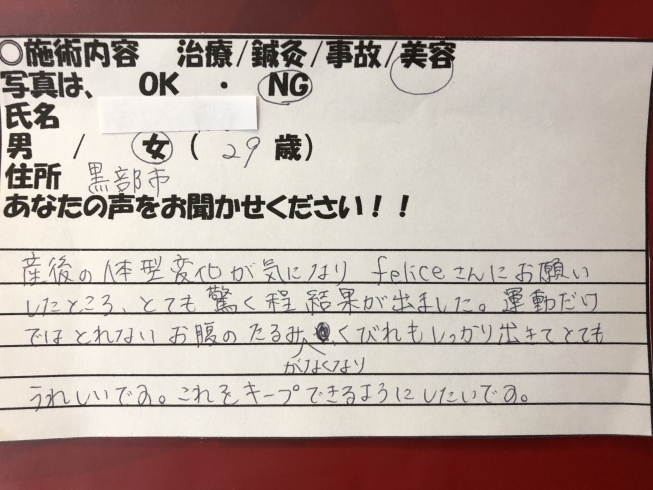 ○施術内容 治療/鍼灸/事故/美容
写真は、 OK ・ NG
氏名
男 / 女 ( 29 歳)
住所 黒部市
あなたの声をお聞かせください！！
産後の体型変化が気になり feliceさんにお願い
したところ、とても驚く程結果が出ました。運動だけ
ではとれないお腹のたるみくびれもしっかり出きてとても
がなくなり
うれしいです。これをキープできるようにしたいです。